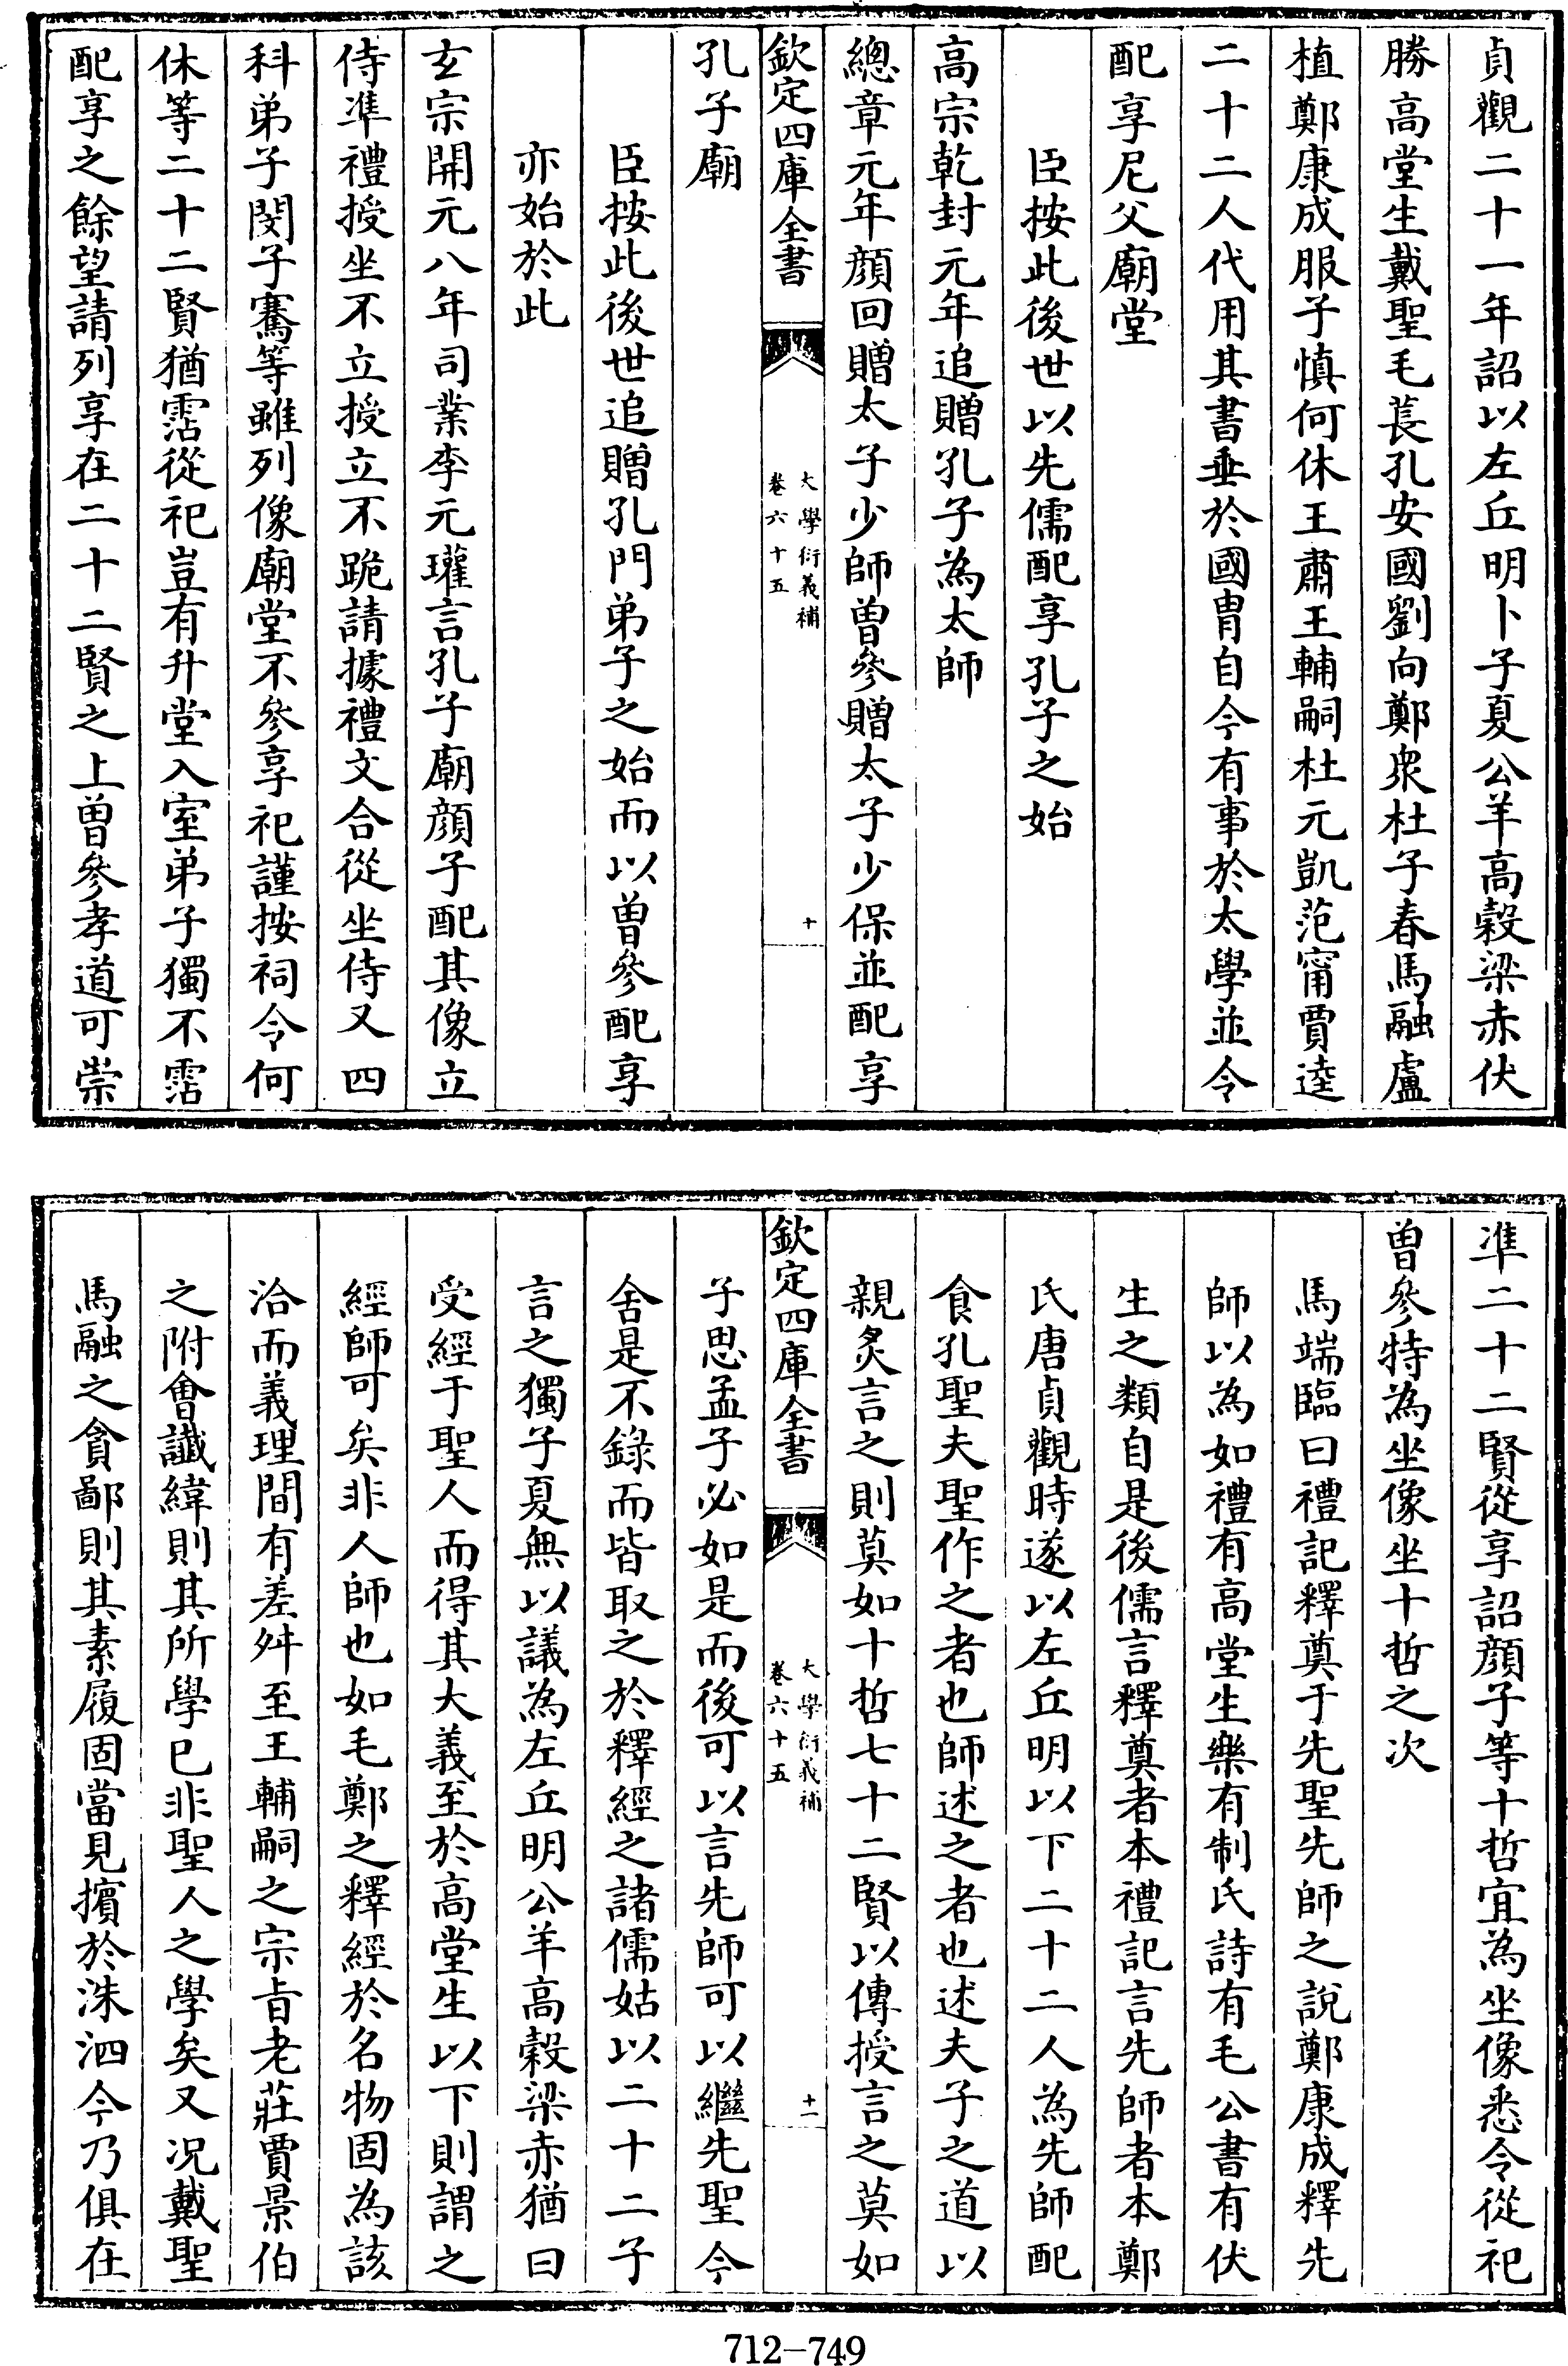 貞觀二十一年詔以左丘明卜子夏公羊高穀梁赤伏
勝高堂生戴聖毛萇孔安國劉向鄭衆杜子春馬融盧
植鄭康成服子慎何休王肅王輔嗣杜元凱范甯賈逵
二十二人代用其書垂於國胄自今有事於太學並令
配享尼父廟堂
臣按此後世以先儒配享孔子之始
高宗乾封元年追贈孔子為太師
總章元年顔回贈太子少師曽參贈太子少保並配享
欽定四庫全書
大學衍義補
卷六十五
十
孔子廟
臣按此後世追贈孔門弟子之始而以曽參配享
亦始於此
玄宗開元八年司業李元瓘言孔子廟顔子配其像立
侍凖禮授坐不立授立不跪請據禮文合從坐侍又四
科弟子閔子騫等雖列像廟堂不參享祀謹按祠令何
休等二十二賢猶霑從祀豈有升堂入室弟子獨不霑
配享之餘望請列享在二十二賢之上曽參孝道可崇
凖二十二賢從享詔顔子等十哲宜為坐像悉令從祀
曽參特為坐像坐十哲之次
馬端臨曰禮記釋奠于先聖先師之說鄭康成釋先
師以為如禮有高堂生樂有制氏詩有毛公書有伏
生之類自是後儒言釋奠者本禮記言先師者本鄭
氏唐貞觀時遂以左丘明以下二十二人為先師配
食孔聖夫聖作之者也師述之者也述夫子之道以
親炙言之則莫如十哲七十二賢以傳授言之莫如
欽定四庫全書
大學衍義補
卷六十五
十一
子思孟子必如是而後可以言先師可以繼先聖今
舍是不錄而皆取之於釋經之諸儒姑以二十二子
言之獨子夏無以議為左丘明公羊高穀梁赤猶曰
受經于聖人而得其大義至於高堂生以下則謂之
經師可矣非人師也如毛鄭之釋經於名物固為該
洽而義理間有差舛至王輔嗣之宗旨老莊賈景伯
之附會讖緯則其所學已非聖人之學矣又况戴聖
馬融之貪鄙則其素履固當見擯於洙泗今乃俱在
712-749